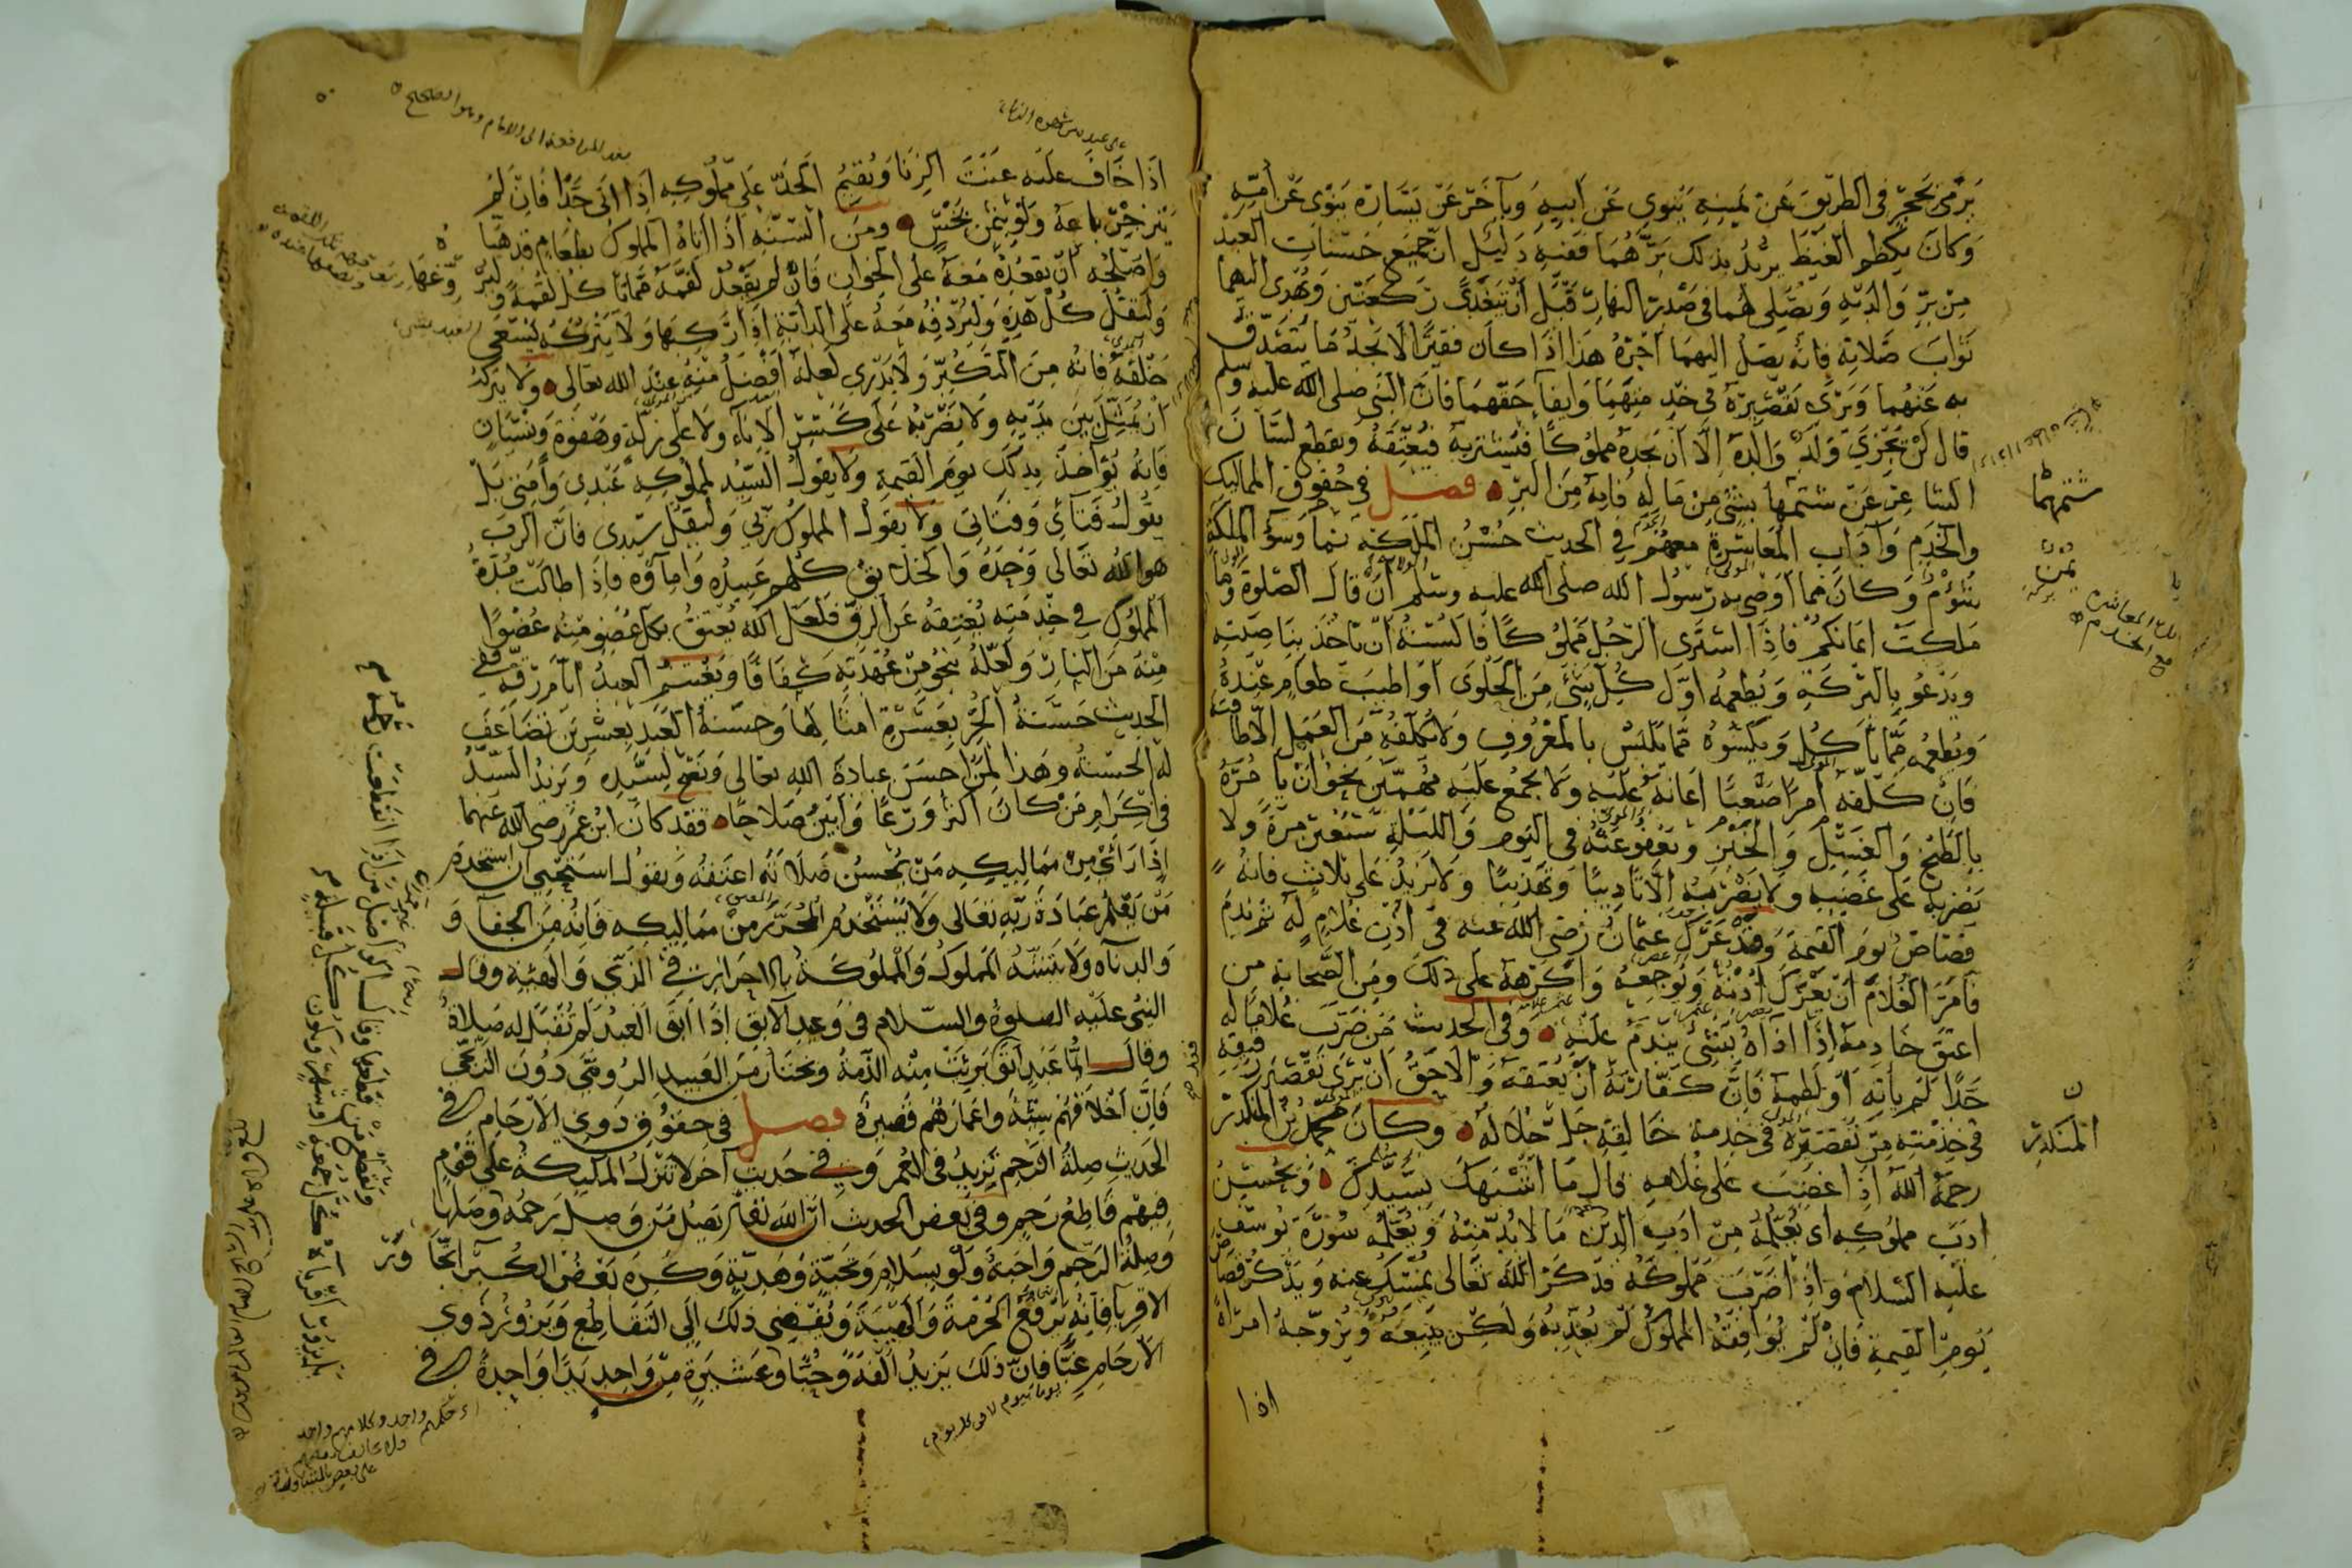 يرمى بحجر فى الطريق عن يمينه ينوى عن ابيه وبآخر عن يساره ينوى عن امّه
وكان يكظم الغيظ يريد بذلك برّهما ففيه دليل ان جميع حسنات العبد
من برّ والديه ويصلى لهما فى صدر النهار قبل ان يتغدى ركعتين ويهدى اليهما
ثواب صلاته فانه يصل اليهما اجره هذا اذا كان فقيرا لا يجد ما يتصدق
به عنهما ويرى تقصيره فى خدمتهما وايفآء حقهما فان النبى صلى الله عليه وسلم
قال لن يجزى ولد والده الا ان يجده مملوكا فيشتريه فيعتقه ويقطع لسان
الشاعر عن شتمهما بشئ من ماله فانه من البرّ فصل فى حقوق المماليك
والخدم وآداب المعاشرة معهم فى الحديث حسن الملكة نمآء وسوء الملكة
شؤم وكان مما اوصى به رسول الله صلى الله عليه وسلم ان قال الصلوة وما
ملكت ايمانكم فاذا اشترى الرجل مملوكا فالسنة ان تأخذ بناصيته
ويدعو بالبركة ويطعمه اول كل شئ من الحلوى او اطيب طعام عنده
ويطعمه مما يأكل ويكسوه مما يلبس بالمعروف ولا يكلفه من العمل الا طاقته
فان كلفه امرا صعبا اعانه عليه ولا يجمع عليه مهمّين نحو ان يأمره
بالطبخ والغسل والخبز ويعفو عنه فى اليوم والليلة سبعين مرة ولا
يضربه على غضبه ولا يضربه الا تاديبا وتهذيبا ولا يزيد على ثلاث فانه
قصاص يوم القيمة وقد عرك عثمان رضى الله عنه فى اذن غلام له ثم ندم
فامر الغلام ان يعرك اذنه ويوجعه واكرهه على ذلك ومن الصحابة من
اعتق خادمه اذا اذاه بشئ يندم عليه وفى الحديث من ضرب غلاما له
حدا لم يأته او لطمه فان كفارته ان يعتقه والاحق ان يرى تقصير رقيقه
فى خدمته من تقصيره فى خدمة خالقه جل جلاله وكان محمد بن المنكدر
رحمه الله اذا غضب على غلامه قال ما اشبهك بسيدك ويحسن
ادب مملوكه اى يعلمه من ادب الدين ما لابد منه ويعلمه سورة يوسف
عليه السلام واذا ضرب مملوكه فذكر الله تعالى يمسك عنه ويذكر قصاص
يوم القيمة فان لم يوافقه المملوك لم يعذبه ولكن يبيعه ويزوجه امرأة
اذا
شتمهما
يمن
المنكدر
اذا خاف عليه عنت الزنا ويقيم الحد على مملوكه اذا اتى حدا فان لم
ينزجر باعه ولو بثمن بخس ومن السنه اذا اتاه المملوك بطعام قد هيأ
واصلحه ان يقعده معه على الخوان فان لم يقعد لقمه مما ياكل لقمة
وليقل كل هذه وليردفه معه على الدابة اذا ركبها ولا يتركه يسعى
خلفه فانه من التكبر ولا يدرى لعله افضل منه عند الله تعالى ولا يتركه
ان يمثل بين يديه ولا يضربه على كسر الاناء ولا على زلة وهفوة ونسيان
فانه يؤاخذ بذلك يوم القيمة ولا يقول السيد لمملوكه عبدى وامتى بل
يقول فتاى وفتاتى ولا يقول المملوك ربى وليقل سيدى فان الرب
هو الله تعالى وحده والخلايق كلهم عبيده وامآؤه فاذا طالت مدة
المملوك فى خدمته يعتقه عن الرق فلعل الله يعتق بكل عضو منه عضوا
منه من النار ولعله ينجو من عهدته كفافا ويغتنم العبد ايام رقه ففى
الحديث حسنة الحر بعشرة امثالها وحسنة العبد بعشرين تضاعف
له الحسنة وهذا لمن احسن عبادة الله تعالى ونصح لسيده ويزيد السيد
فى اكرام من كان اكثر ورعا وابين صلاحا فقد كان ابن عمر رضى الله عنهما
اذا راى من مماليكه من يحسن صلاته اعتقه ويقول استحيى ان استخدم
من يعلم عبادة ربه تعالى ولا يستخدم المحرر من مماليكه فانه من الجفآ و
والدناه ولا يتشبه المملوك والمملوكة بالاحرار فى الزى والهيئة وقال
النبى عليه الصلوة والسلام فى وعيد الآبق اذا ابق العبد لم تقبل له صلاة
وقال ايّما عبد ابق برئت منه الذمة ويختار من العبيد الرومى دون الزنجى
فان اخلاقهم سيئة واعمارهم قصيرة فصل فى حقوق ذوى الارحام فى
الحديث صلة الرحم تزيد فى العمر وفى حديث آخر لا تنزل الملئكة على قوم
فيهم قاطع رحم وفى بعض الحديث ان الله تعالى يصل من وصل رحمه وصلها
وصلة الرحم واجبة ولو بسلام وتحية وهدية وكره بعض الكبرآء
الاقربآ فانه يرفع الحرمة والهيبة ويفضى ذلك الى التقاطع ويزور ذوى
الارحام غبّا فان ذلك يزيد الفة وحبّا وعشيرة من واحد يدا واحدة فى